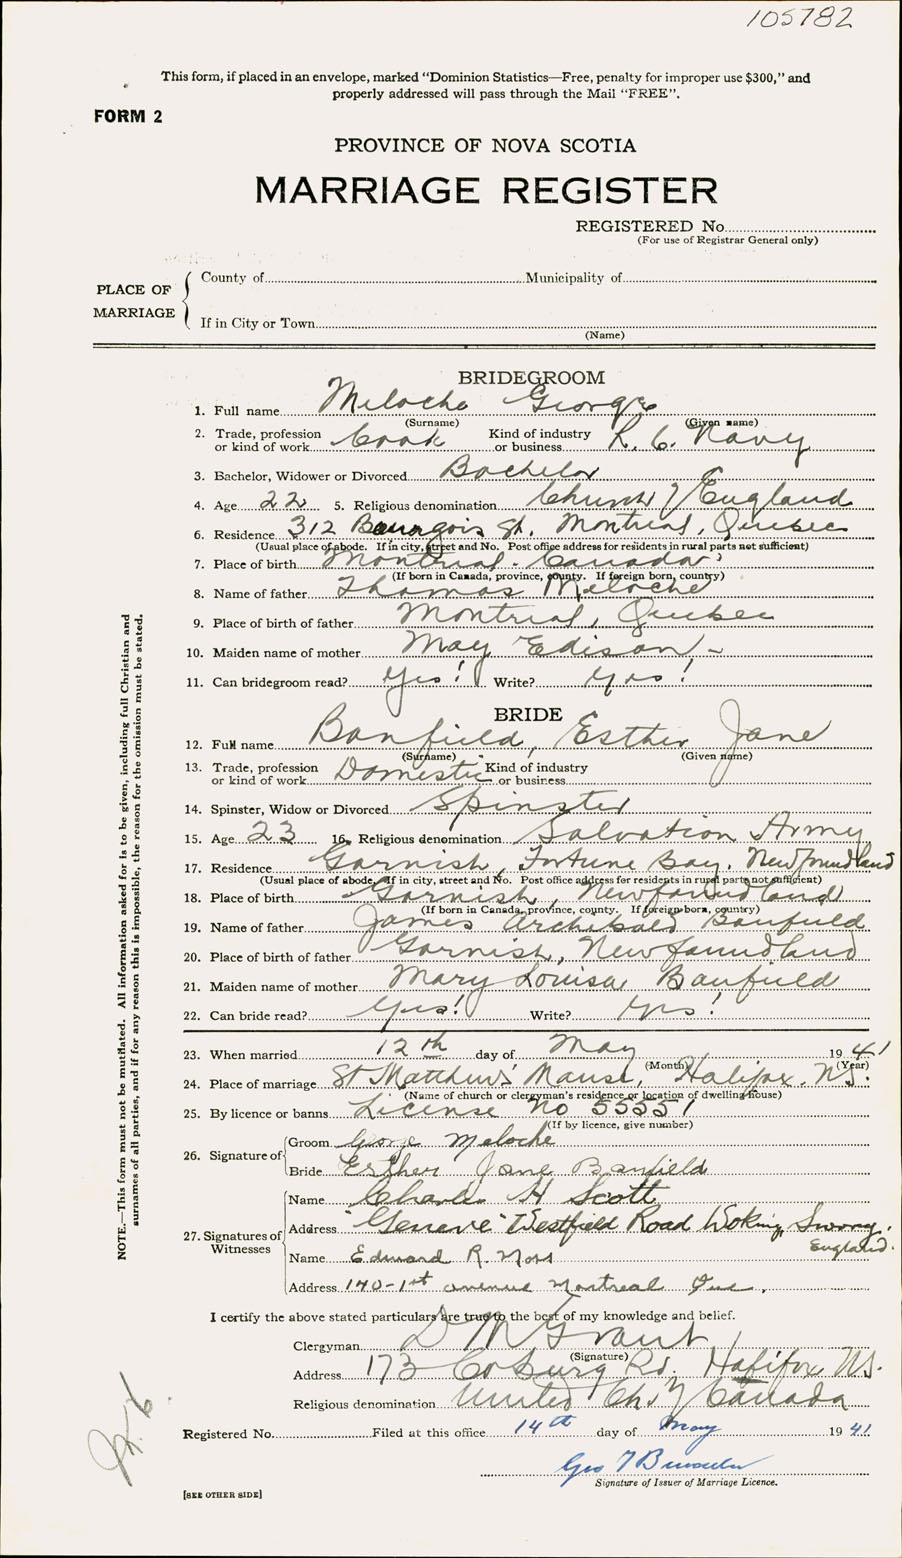 105782
This form, if placed in an envelope, marked “Dominion Statistics—Free, penalty for improper use $300,” and
properly addressed will pass through the Mail “FREE”.
FORM 2
PROVINCE OF NOVA SCOTIA
MARRIAGE REGISTER
REGISTERED No.
(For use of Registrar General only)
PLACE OF MARRIAGE
County of Municipality of
If in City or Town
(Name)
BRIDEGROOM
1. Full name Meloche George
(Surname) (Given name)
2. Trade, profession or kind of work Cook Kind of industry or business R. C. Navy
3. Bachelor, Widower or Divorced Bachelor
4. Age 22 5. Religious denomination Church of England
6. Residence 312 Bourgois St. Montreal, Quebec
(Usual place of abode. If in city, street and No. Post office address for residents in rural parts not sufficient)
7. Place of birth Montreal. Canada
(If born in Canada, province, county. If foreign born, country)
8. Name of father Thomas Meloche
9. Place of birth of father Montreal, Quebec
10. Maiden name of mother May Edison -
11. Can bridegroom read? Yes! Write? Yes!
BRIDE
12. Full name Banfield, Esther Jane
(Surname) (Given name)
13. Trade, profession or kind of work Domestic Kind of industry or business
14. Spinster, Widow or Divorced Spinster
15. Age 23 16. Religious denomination Salvation Army
17. Residence Garnish, Fortune Bay. Newfoundland
(Usual place of abode. If in city, street and No. Post office address for residents in rural parts not sufficient)
18. Place of birth Garnish, Newfoundland
(If born in Canada, province, county. If foreign born, country)
19. Name of father James Archibald Banfield
20. Place of birth of father Garnish, Newfoundland
21. Maiden name of mother Mary Louisa Banfield
22. Can bride read? Yes! Write? Yes!
23. When married 12th day of May 1941
(Month) (Year)
24. Place of marriage St Matthews' Manse, Halifax, N.S.
(Name of church or clergyman's residence or location of dwelling house)
25. By licence or banns License No 55551
(If by licence, give number)
26. Signature of
Groom George Meloche
Bride Esther Jane Banfield
27. Signatures of Witnesses
Name Charles H Scott
Address "Geneve" Westfield Road Woking, Surrey.
England.
Name Edward R. Moss
Address 170-1st avenue Montreal Que.
I certify the above stated particulars are true to the best of my knowledge and belief.
Clergyman D M Grant
(Signature)
Address 173 Coburg Rd. Halifax N.S.
Religious denomination United Ch. of Canada
Registered No. Filed at this office 14th day of May 1941
Geo
Signature of Issuer of Marriage Licence.
[SEE OTHER SIDE]
NOTE.—This form must not be mutilated. All information asked for is to be given, including full Christian and
surnames of all parties, and if for any reason this is impossible, the reason for the omission must be stated.